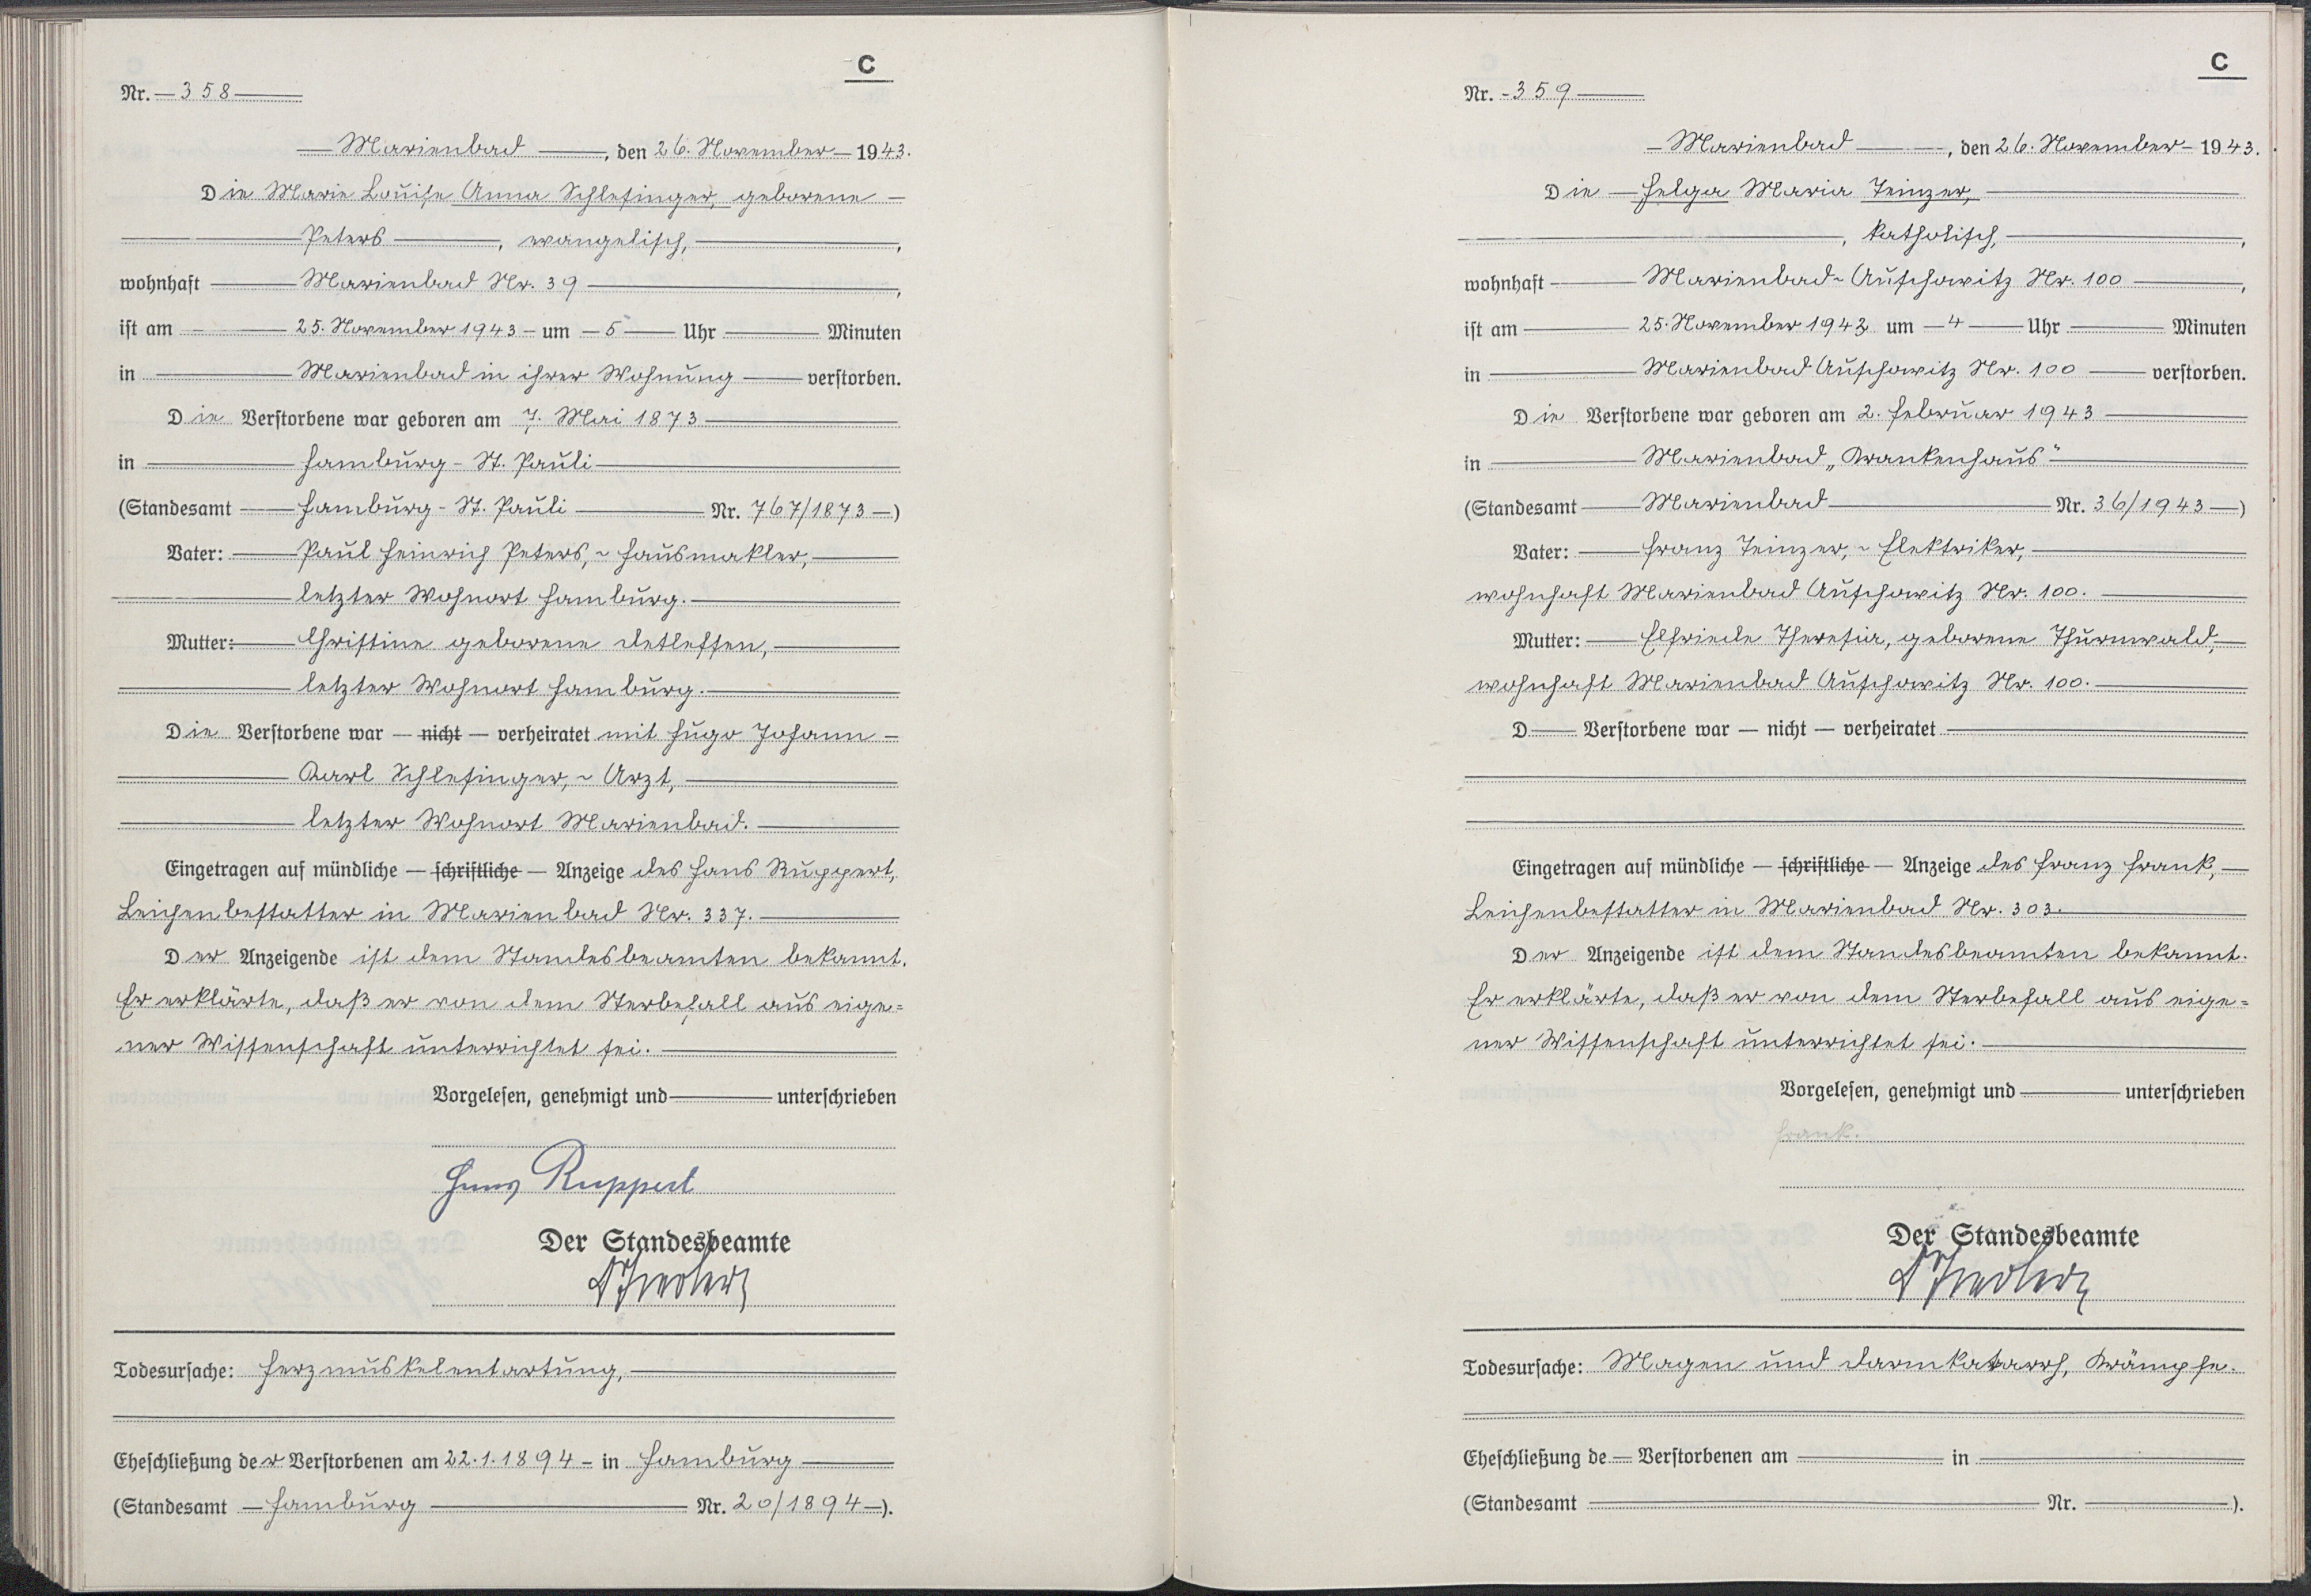 C
Nr. 358
Marienbad, den 26. November 1943.
Die Marie Louise Anna Schlesinger, geborene
Peters, evangelisch,
wohnhaft Marienbad Nr. 39
ist am 25. November 1943 um 5 Uhr Minuten
in Marienbad in ihrer Wohnung verstorben.
Die Verstorbene war geboren am 7. Mai 1873
in Hamburg - St. Pauli
(Standesamt Hamburg - St. Pauli Nr. 767/1873)
Vater: Paul Heinrich Peters, - Hausmakler,
letzter Wohnort Hamburg.
Mutter: Christine geborene Detleffen,
letzter Wohnort Hamburg.
Die Verstorbene war — nicht — verheiratet mit Hugo Johann
Karl Schlesinger, - Arzt,
letzter Wohnort Marienbad.
Eingetragen auf mündliche — schriftliche — Anzeige des Hans Ruppert,
Leichenbestatter in Marienbad Nr. 337.
Der Anzeigende ist dem Standesbeamten bekannt.
Er erklärte, daß er von dem Sterbefall aus eige=
ner Wissenschaft unterrichtet sei.
Vorgelesen, genehmigt und unterschrieben
Hans Ruppert
Der Standesbeamte
Todesursache: Herzmuskelentartung,
Eheschließung der Verstorbenen am 22.1.1894 in Hamburg
(Standesamt Hamburg Nr. 20/1894).
C
Nr. 359
Marienbad, den 26. November 1943.
Die Helga Maria Teinzer,
, katholisch,
wohnhaft Marienbad-Auschowitz Nr. 100
ist am 25. November 1943 um 4 Uhr Minuten
in Marienbad Auschowitz Nr. 100 verstorben.
Die Verstorbene war geboren am 2. Februar 1943
in Marienbad „Krankenhaus"
(Standesamt Marienbad Nr. 36/1943)
Vater: Franz Teinzer, - Elektriker,
wohnhaft Marienbad Auschowitz Nr. 100.
Mutter: Elfriede Theresia, geborene Thurnwald,
wohnhaft Marienbad Auschowitz Nr. 100.
D Verstorbene war — nicht — verheiratet
Eingetragen auf mündliche — schriftliche — Anzeige des Franz Frank,
Leichenbestatter in Marienbad Nr. 303.
Der Anzeigende ist dem Standesbeamten bekannt.
Er erklärte, daß er von dem Sterbefall aus eige=
ner Wissenschaft unterrichtet sei.
Vorgelesen, genehmigt und unterschrieben
Frank.
Der Standesbeamte
Todesursache: Magen und Darmkatarrh, Krämpfe.
Eheschließung de Verstorbenen am in
(Standesamt Nr. ).